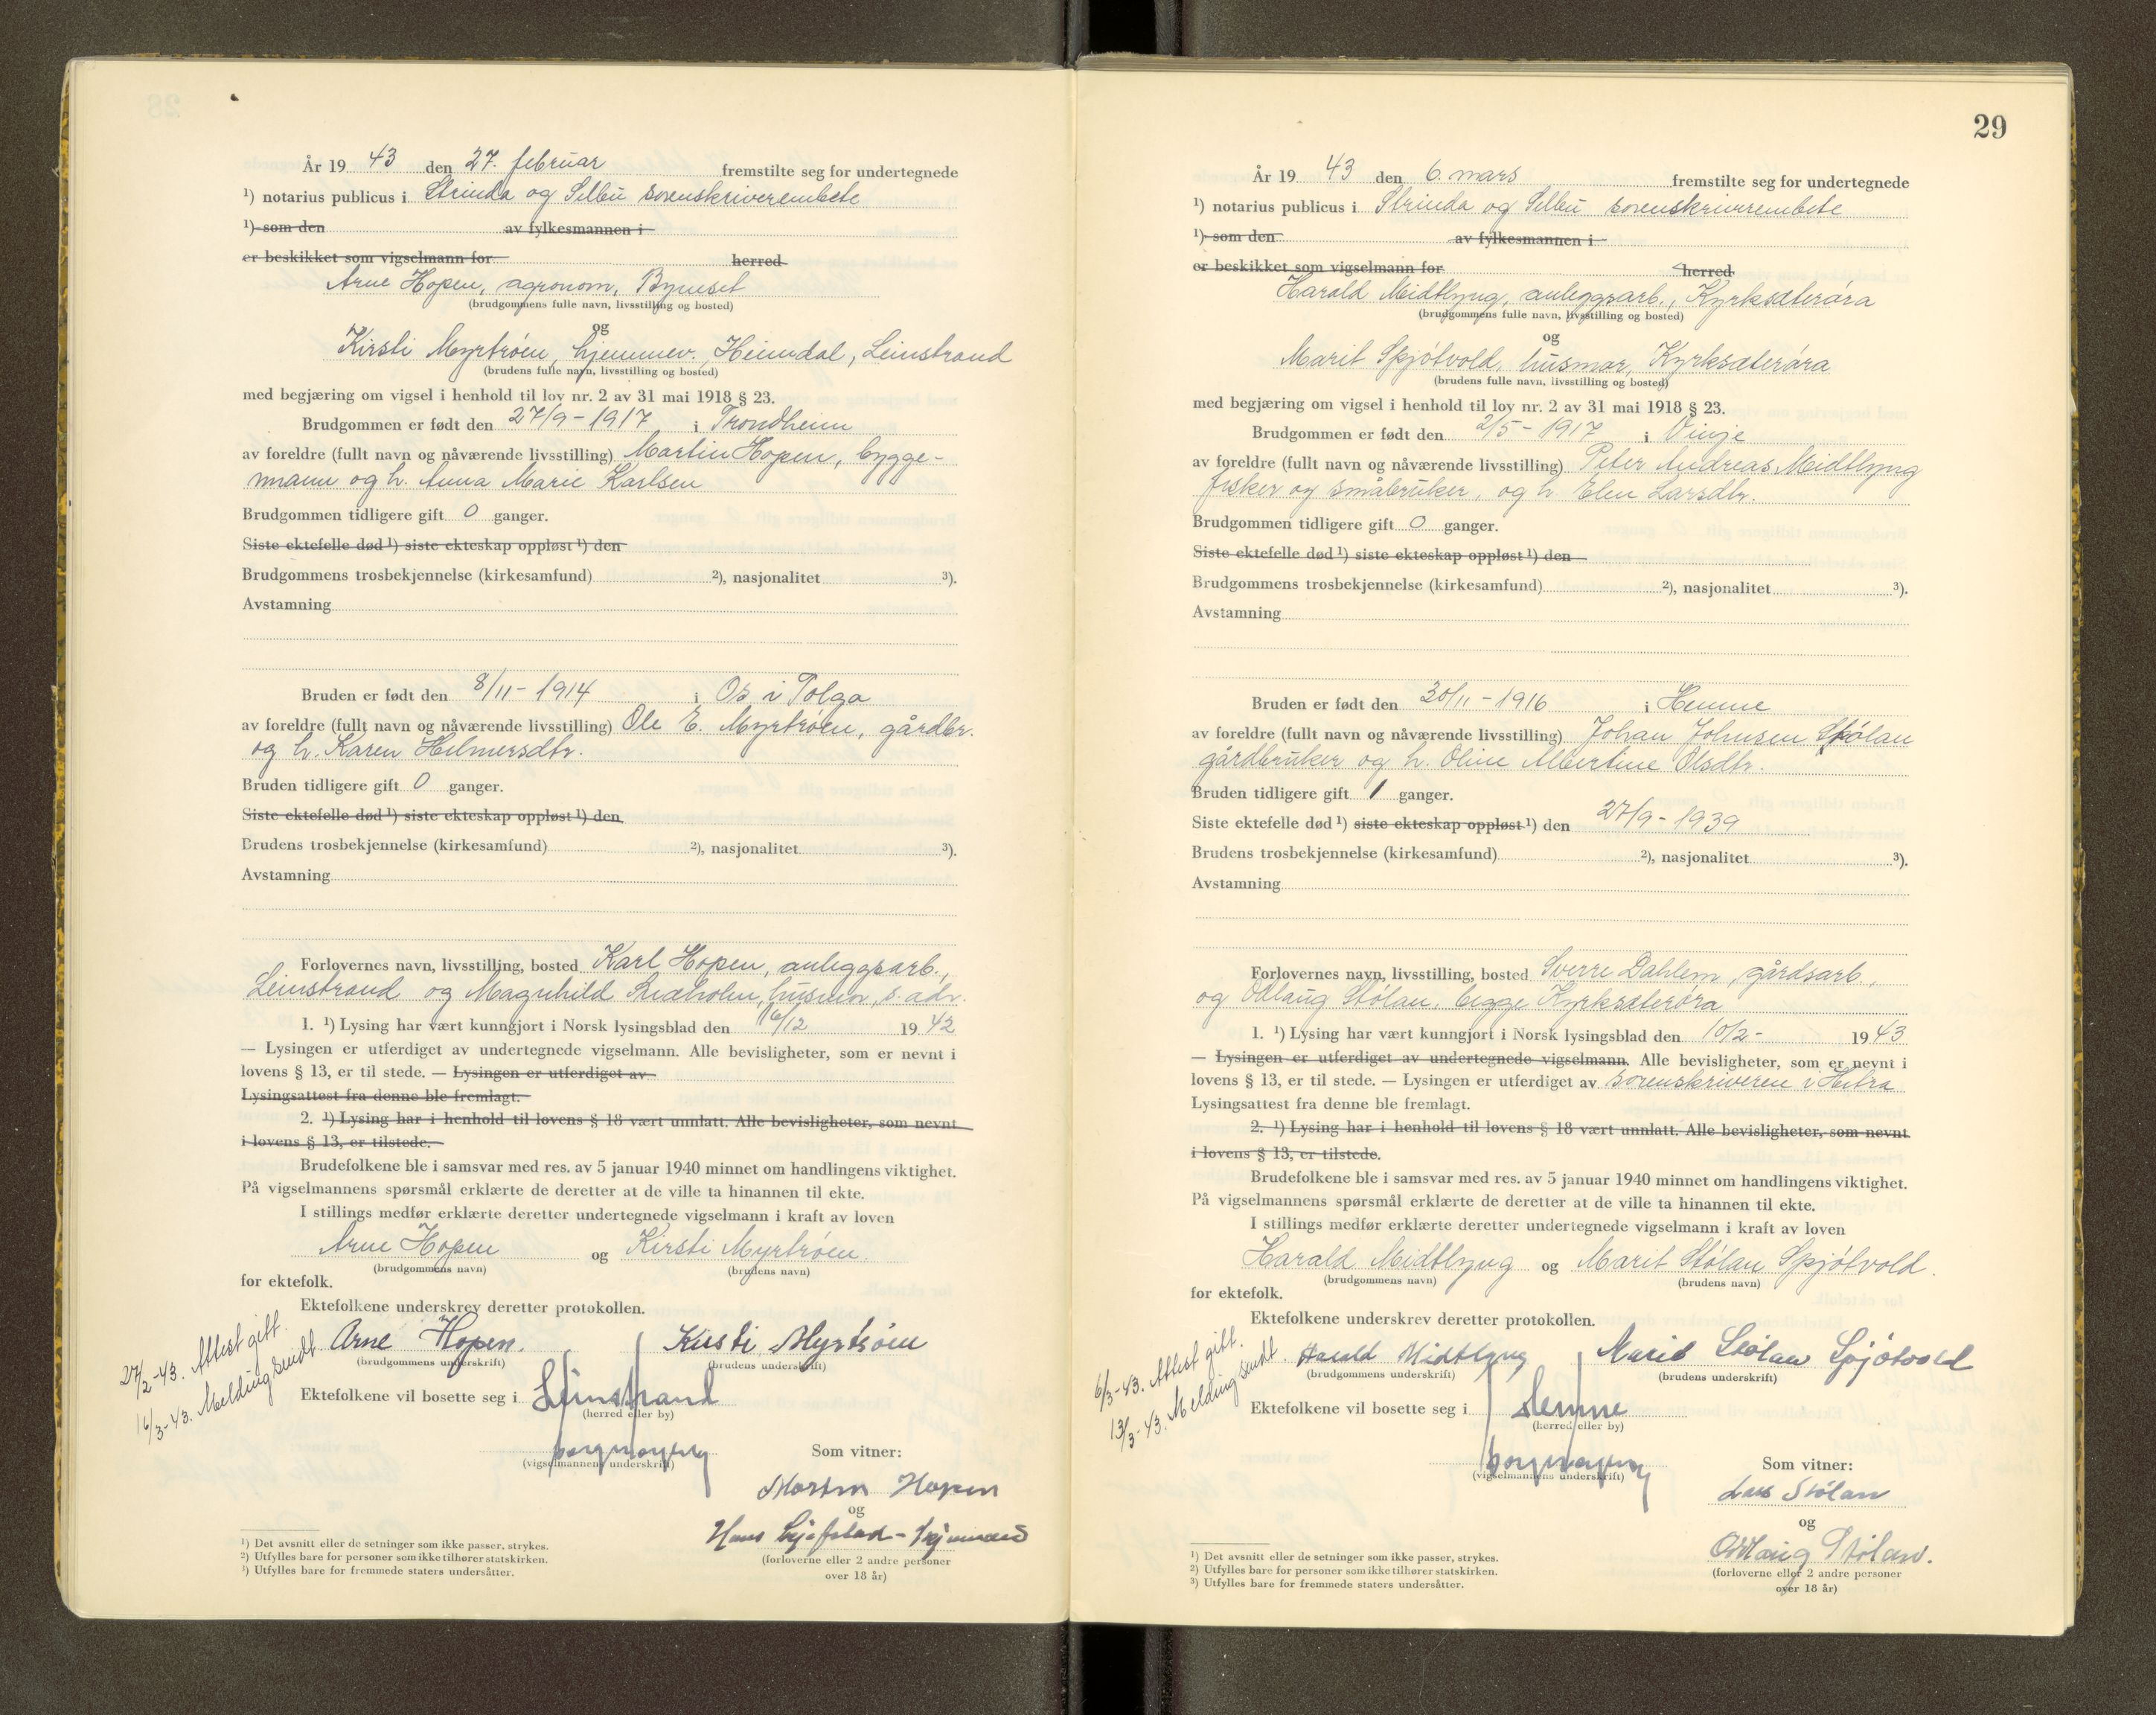 År 19 43 den 27. februar fremstilte seg for undertegnede
¹) notarius publicus i Strinda og Selbu sorenskriverembete
¹) som den av fylkesmannen i
er beskikket som vigselmann for herred
Arne Hopen, agronom, Byneset
(brudgommens fulle navn, livsstilling og bosted)
og
Kirsti Myrtrøen, hjemmev. Heimdal, Leinstrand
(brudens fulle navn, livsstilling og bosted)
med begjæring om vigsel i henhold til lov nr. 2 av 31 mai 1918 § 23.
Brudgommen er født den 27/9 - 1917 i Trondheim
av foreldre (fullt navn og nåværende livsstilling) Martin Hopen, bygge-
mann og h. Anna Marie Karlsen
Brudgommen tidligere gift 0 ganger.
Siste ektefelle død ¹) siste ekteskap oppløst ¹) den
Brudgommens trosbekjennelse (kirkesamfund) ²), nasjonalitet ³).
Avstamning
Bruden er født den 8/11 - 1914 i Os i Tolga
av foreldre (fullt navn og nåværende livsstilling) Ole E. Myrtrøen, gårdbr.
og h. Karen Hilmersdtr.
Bruden tidligere gift 0 ganger.
Siste ektefelle død ¹) siste ekteskap oppløst ¹) den
Brudens trosbekjennelse (kirkesamfund) ²), nasjonalitet ³).
Avstamning
Forlovernes navn, livsstilling, bosted Karl Hopen, anleggsarb.,
Leinstrand og Magnhild husmor, s. adr.
1. ¹) Lysing har vært kunngjort i Norsk lysingsblad den 16/12 19 42
— Lysingen er utferdiget av undertegnede vigselmann. Alle bevisligheter, som er nevnt i
lovens § 13, er til stede. — Lysingen er utferdiget av
Lysingsattest fra denne ble fremlagt.
2. ¹) Lysing har i henhold til lovens § 18 vært unnlatt. Alle bevisligheter, som nevnt
i lovens § 13, er tilstede.
Brudefolkene ble i samsvar med res. av 5 januar 1940 minnet om handlingens viktighet.
På vigselmannens spørsmål erklærte de deretter at de ville ta hinannen til ekte.
I stillings medfør erklærte deretter undertegnede vigselmann i kraft av loven
Arne Hopen og Kirsti Myrtrøen.
(brudgommens navn) (brudens navn)
for ektefolk.
Ektefolkene underskrev deretter protokollen.
27/2-43. Attest gitt.
16/3-43. Melding sendt.
Arne Hopen. Kirsti Myrtrøen
(brudgommens underskrift) (brudens underskrift)
Ektefolkene vil bosette seg i Leinstrand
(herred eller by)
(vigselmannens underskrift)
Som vitner:
Martin Hopen
og
Hans
(forloverne eller 2 andre personer
over 18 år)
¹) Det avsnitt eller de setninger som ikke passer, strykes.
²) Utfylles bare for personer som ikke tilhører statskirken.
³) Utfylles bare for fremmede staters undersåtter.
29
År 19 43 den 6. mars fremstilte seg for undertegnede
¹) notarius publicus i Strinda og Selbu sorenskriverembete
¹) som den av fylkesmannen i
er beskikket som vigselmann for herred
Harald Midtlyng, anleggsarb., Kyrksæterøra
(brudgommens fulle navn, livsstilling og bosted)
og
Marit Spjøtvold, husmor, Kyrksæterøra
(brudens fulle navn, livsstilling og bosted)
med begjæring om vigsel i henhold til lov nr. 2 av 31 mai 1918 § 23.
Brudgommen er født den 2/5 - 1917 i Vinje
av foreldre (fullt navn og nåværende livsstilling) Peter Andreas Midtlyng
fisker og småbruker, og h. Elen Larsdtr.
Brudgommen tidligere gift 0 ganger.
Siste ektefelle død ¹) siste ekteskap oppløst ¹) den
Brudgommens trosbekjennelse (kirkesamfund) ²), nasjonalitet ³).
Avstamning
Bruden er født den 30/11 - 1916 i Hemne
av foreldre (fullt navn og nåværende livsstilling) Johan Johnsen Stølan
gårdbruker og h. Oline Albertine Olsdtr.
Bruden tidligere gift 1 ganger.
Siste ektefelle død ¹) siste ekteskap oppløst ¹) den 27/9 - 1939
Brudens trosbekjennelse (kirkesamfund) ²), nasjonalitet ³).
Avstamning
Forlovernes navn, livsstilling, bosted Sverre Dahlem, gårdsarb.,
og Odlaug Stølan, begge Kyrksæterøra
1. ¹) Lysing har vært kunngjort i Norsk lysingsblad den 10/2 - 19 43
— Lysingen er utferdiget av undertegnede vigselmann. Alle bevisligheter, som er nevnt i
lovens § 13, er til stede. — Lysingen er utferdiget av sorenskriveren i Hitra
Lysingsattest fra denne ble fremlagt.
2. ¹) Lysing har i henhold til lovens § 18 vært unnlatt. Alle bevisligheter, som nevnt
i lovens § 13, er tilstede.
Brudefolkene ble i samsvar med res. av 5 januar 1940 minnet om handlingens viktighet.
På vigselmannens spørsmål erklærte de deretter at de ville ta hinannen til ekte.
I stillings medfør erklærte deretter undertegnede vigselmann i kraft av loven
Harald Midtlyng og Marit Stølan Spjøtvold.
(brudgommens navn) (brudens navn)
for ektefolk.
Ektefolkene underskrev deretter protokollen.
6/3-43. Attest gitt.
13/3-43. Melding sendt.
Harald Midtlyng Marit Stølan Spjøtvold
(brudgommens underskrift) (brudens underskrift)
Ektefolkene vil bosette seg i Hemne
(herred eller by)
(vigselmannens underskrift)
Som vitner:
Lars Stølan
og
Oddlaug Stølan.
(forloverne eller 2 andre personer
over 18 år)
¹) Det avsnitt eller de setninger som ikke passer, strykes.
²) Utfylles bare for personer som ikke tilhører statskirken.
³) Utfylles bare for fremmede staters undersåtter.